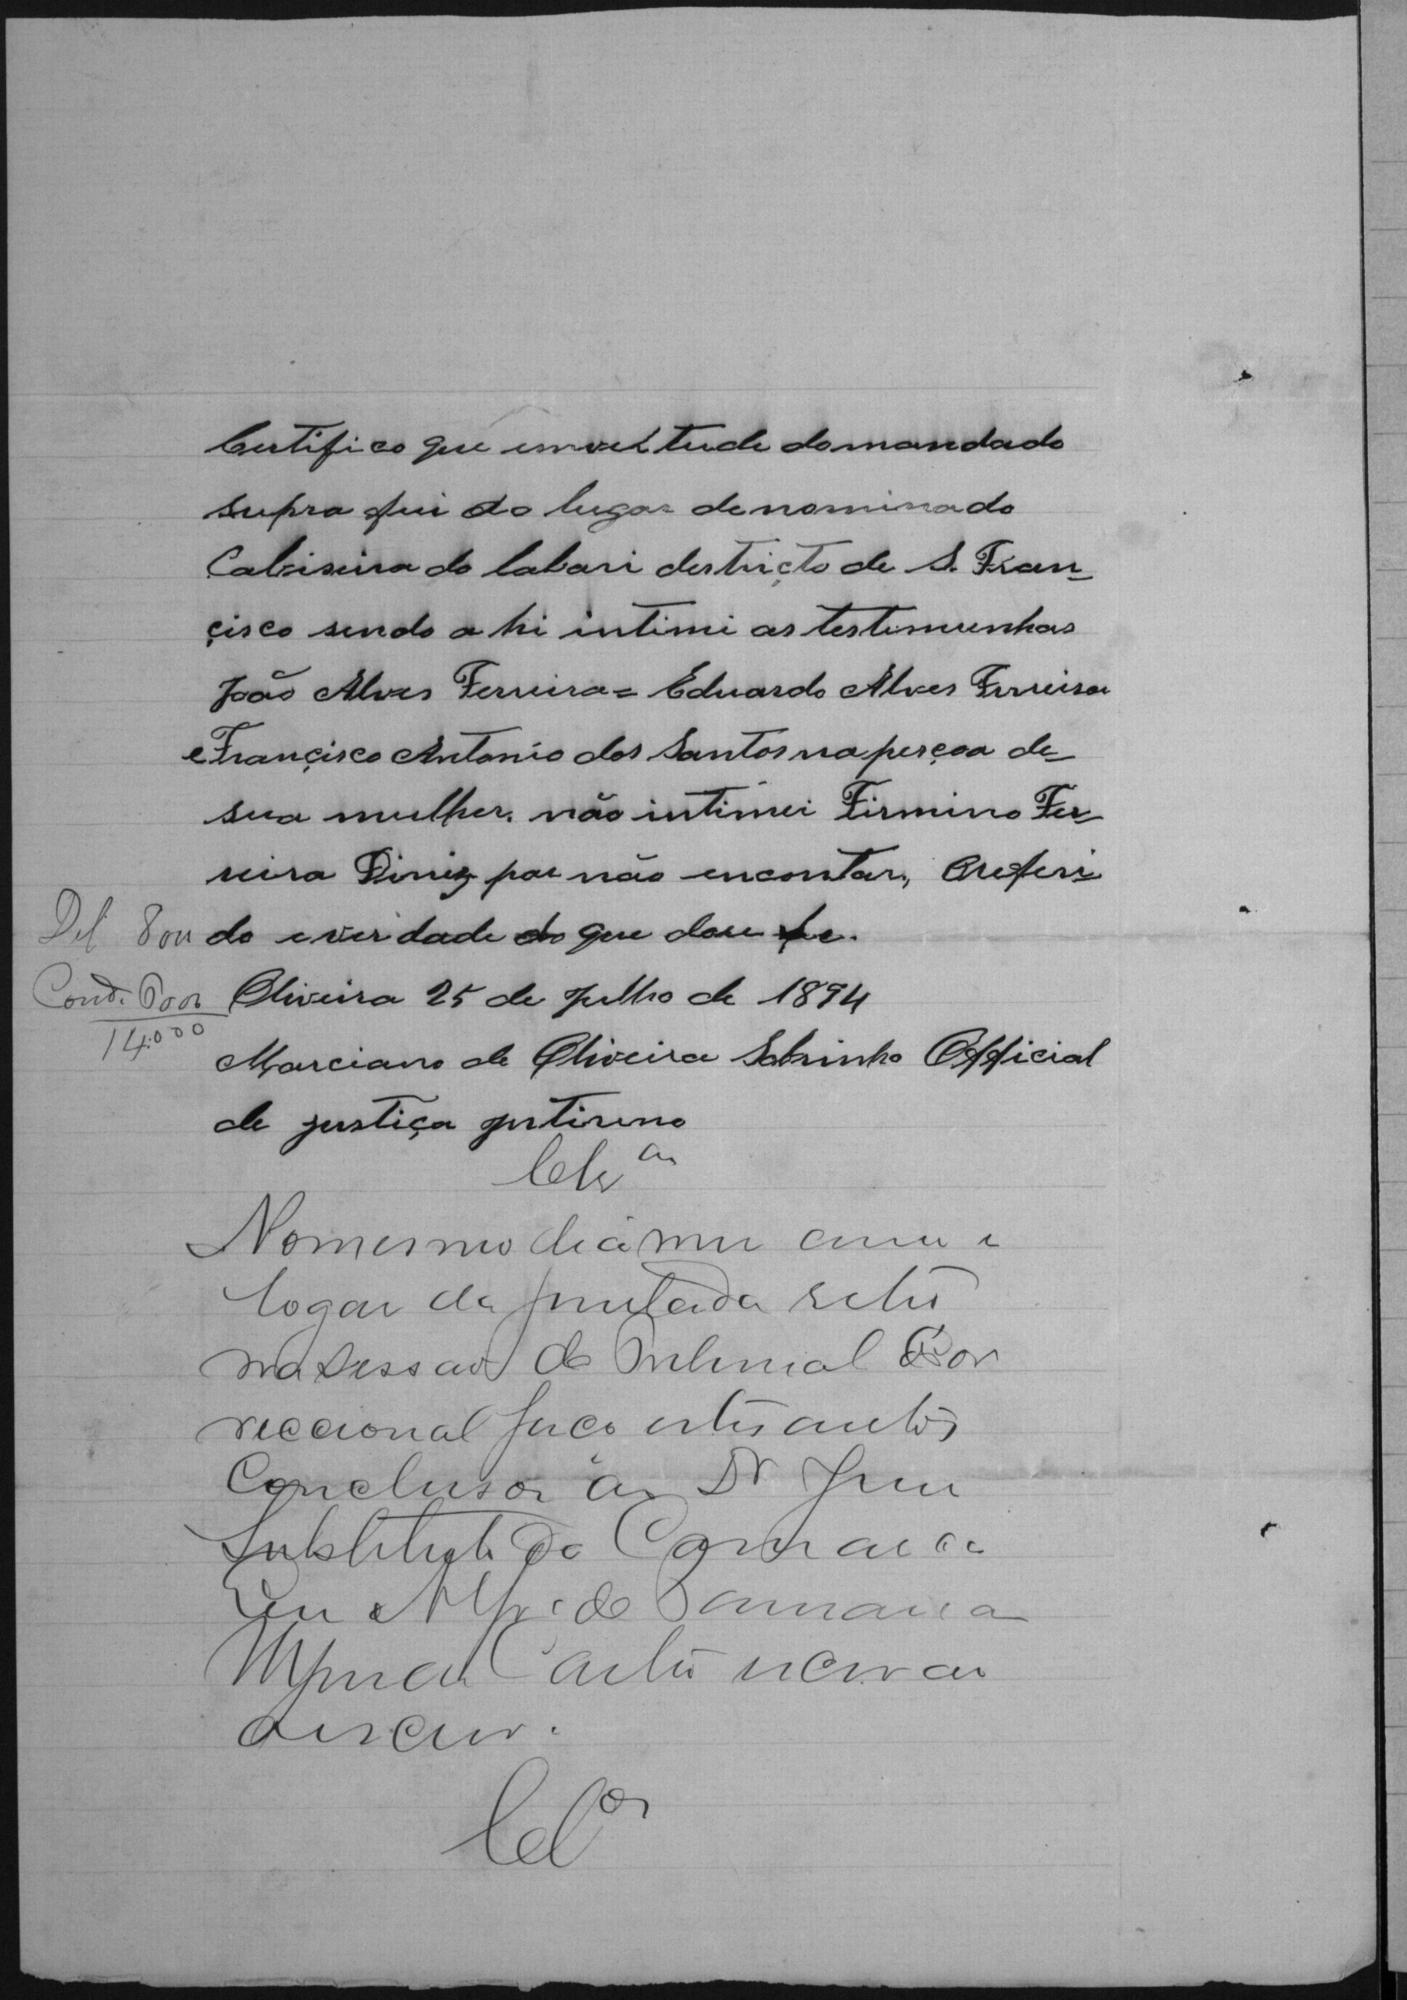 Certifico que em vertude do mandado
supra fui do lugar denominado
Cabiseira do Cabari destricto de S. Fran-
çisco sendo a hi intimi as testimunhas
João Alves Ferreira = Eduardo Alves Ferreira
e Françisco Antonio dos Santos na peççoa de
sua mulher. não intimei Firmino Fer-
reira Diniz por não encontar, O referi-
do e verdade do que dou fe.
Del 8 000
Cond. 6 000
14.000
Oliveira 25 de Julho de 1894
Marciano de Oliveira Sobrinho Official
de justiça
Clsam
No mesmo dia mez anno e
logar da juntada retro
na sessão do Tribunal Cor
reccional faço estes autos
Conclusos ao Dr Juiz
Substituto da Comarca
Eu
escrivão
o escrevi.
Clos